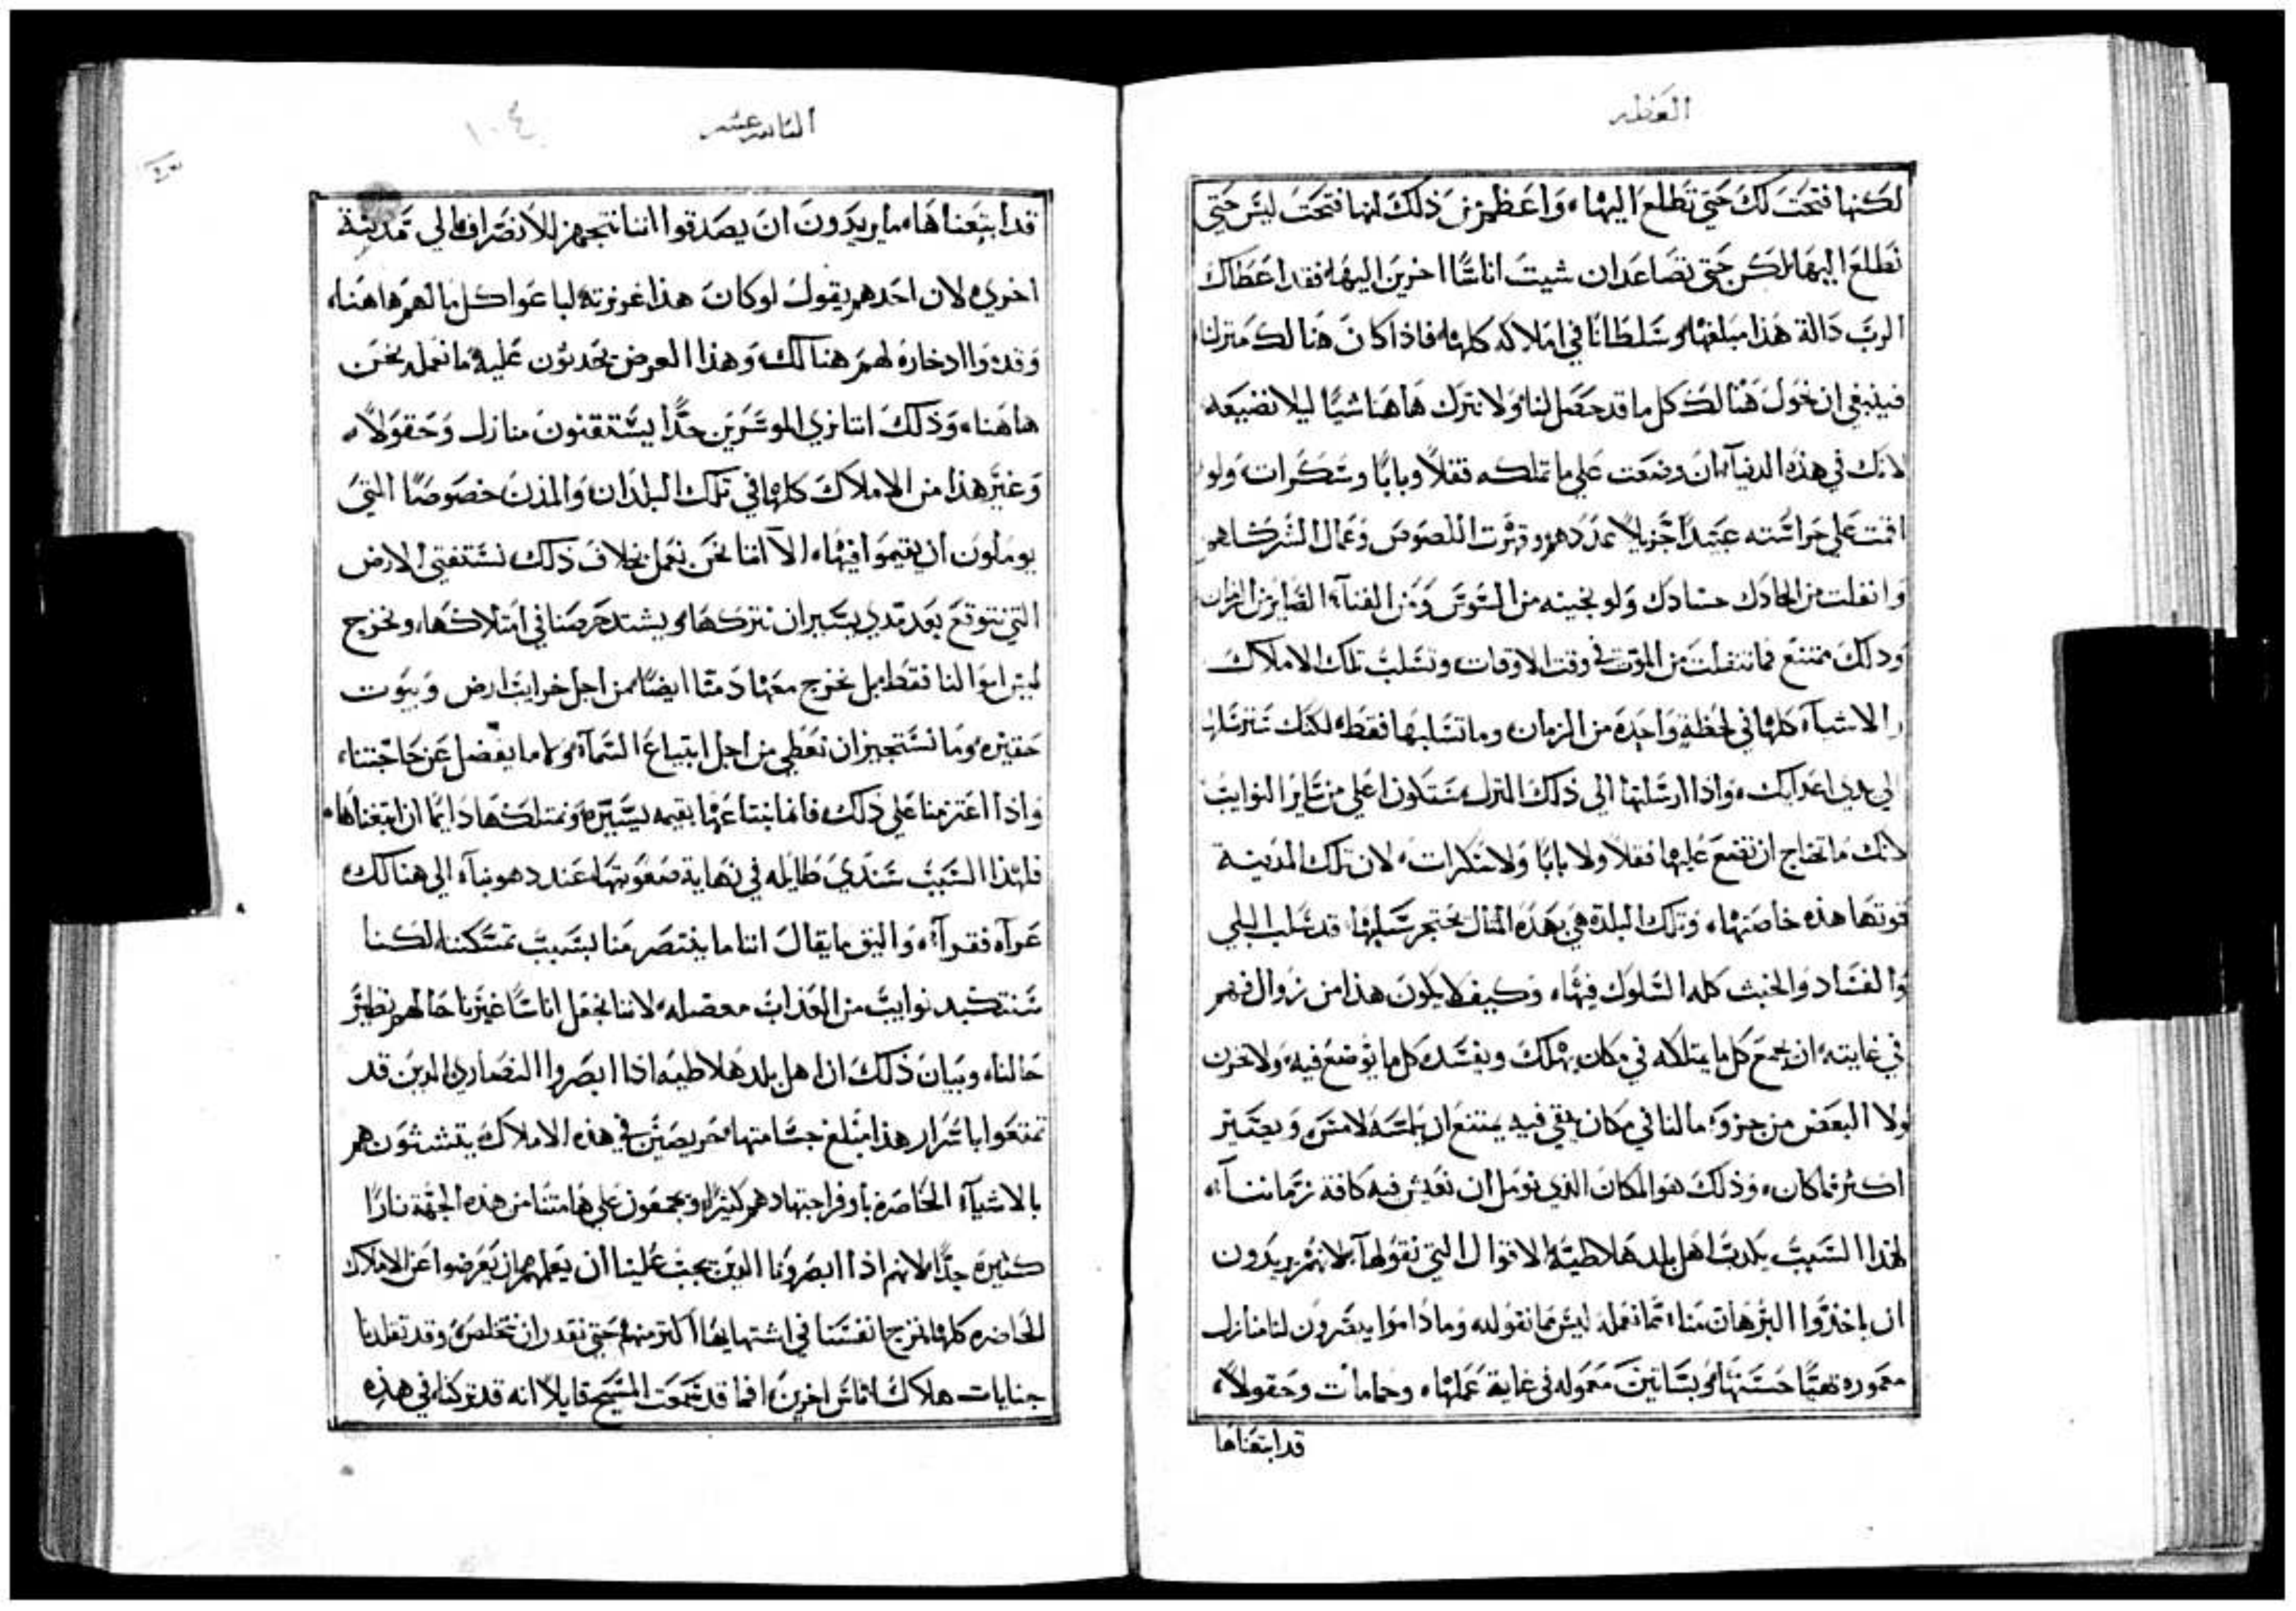 العظه
لكنها فتحت لك حتى تطلع اليها، واعظم من ذلك انها فتحت ليس حتى
تطلع اليها لكن حتى تصاعد ان شيت اناسًا اخرين اليها، فقد اعطاك
الرب دالة هذا مبلغها وسلطانًا في املاكه كلها، فاذا كان هنالك منزلنا،
فينبغي ان نحول هنالك كل ما قد حصل لنا، ولا نترك هاهنا شيًا ليلا نضيعه
لانك في هذه الدنيآ، ان وضعت علي ما تملكه قفلاً وبابًا وسكرات، ولو
اقمت علي حراسته عبيدًا جزيلاً عددهم وقهرت اللصوص وعمال الشر
وانفلت من الحادك حسادك ولو نجيته من السوس ومن الفنآء الصاير من الزمان
وذلك ممتنع فما تنفلت من الموت في وقت الاوقات وتسلب تلك الاملاك
والاشيآء كلها في لحظة واحدة من الزمان وما تسلبها فقط، لكنك سترسلها
الي يدي اعدايك، واذا ارسلتها الي ذلك المنزل، ستكون اعلي من ساير النوايب
لانك ما تحتاج ان تضع عليها قفلاً ولا بابًا ولا سكرات، لان تلك المدينة
قوتها هذه خاصتها، وتلك البلدة هي بهذه المثال يحتجر سبلها، قد سلب البلي
والفساد والخبث كله السلوك فيها، وكيف لا يكون هذا من زوال فهم
في غايته، ان نجمع كل ما نمتلكه في مكان يهلك ويفسد كل ما يوضع فيه، ولا نخزن
ولا البعض من جزوء مالنا في مكان يبقي فيه يمتنع ان يلمسه لامس ويصير
اكثر مما كان، وذلك هو المكان الذي نومل ان نعيش فيه كافة زماننا،
لهذا السبب يكذب اهل بلد هلاطية الاقوال التي نقولها، لانهم يريدون
ان ياخذوا البرهان منا، مما نعمله ليس مما نقوله، وما داموا يبصرون لنا منازل
معموره بهيًا حسنها، وبساتين معموله في غاية عملها، وحمامات وحقولاً،
قد ابتعناها
الثامن عشر
١٠٤
قد ابتعناها، ما يريدون ان يصدقوا اننا نتجهز للانصراف الي مدينة
اخري، لان احدهم يقول لو كان هذا غرزته لباعوا كل ما لهم هاهنا،
وقدموا ادخاره لهم هنالك، وهذا العرض يحدثون عليه ما نعمله نحن
هاهنا، وذلك اننا نري الموسرين جدًا يستقنون منازل وحقولاً،
وغير هذا من الاملاك كلها في تلك البلدان والمدن خصوصًا التي
يوملون ان يقيموا فيها، الا اننا نحن نعمل بخلاف ذلك نستفتي الارض
التي نتوقع بعد مدي يسير ان نتركها، ويشتد حرصنا في امتلاكها، ونخرج
ليس اموالنا فقط، بل نخرج معها دمنا ايضًا، من اجل خرايب ارض وبيوت
حقيره، وما نستجيز ان نعطي من اجل ابتياع السمآء، ولا ما يفضل عن حاجتنا،
واذا اعتزمنا علي ذلك، فانما نبتاعها بقيمه يسيره، ونمتلكها دايمًا ان ابتعناها،
فلهذا السبب سندي طايله في نهاية صعوبتها، عند دهوبنآ، الي هنالك
عرآه فقرآء، واليق ما يقال اننا ما ينتصر منا بسبب تمسكننا، لكنا
سنتكبد نوايب من العذاب معضله، لاننا نجعل اناسًا غيرنا حالهم نظير
حالنا، وبيان ذلك ان اهل بلد هلاطيه اذا ابصروا النصاري الدين قد
تمتعوا باسرار هذا مبلغ جسامتها، حريصين في هذه الاملاك، يتشبثون هم
بالاشيآء الحاضره باوفر اجتهادهم كثيرًا، ويجمعون علي هامتنا من هذه الجهة نارًا
كثيرة جدًا، لانهم اذا ابصرونا الدين يجب علينا ان نعلمهم ان يعرضوا عن الاملاك
الحاضره كلها، نزج انفسنا في اشتهايها اكثر منهم، حتي نقدر ان نتخلص، وقد تقلدنا
جنايات هلاك اناس اخرين، افما قد سمعت المسيح قايلاً انه قد تركنا، في هذه